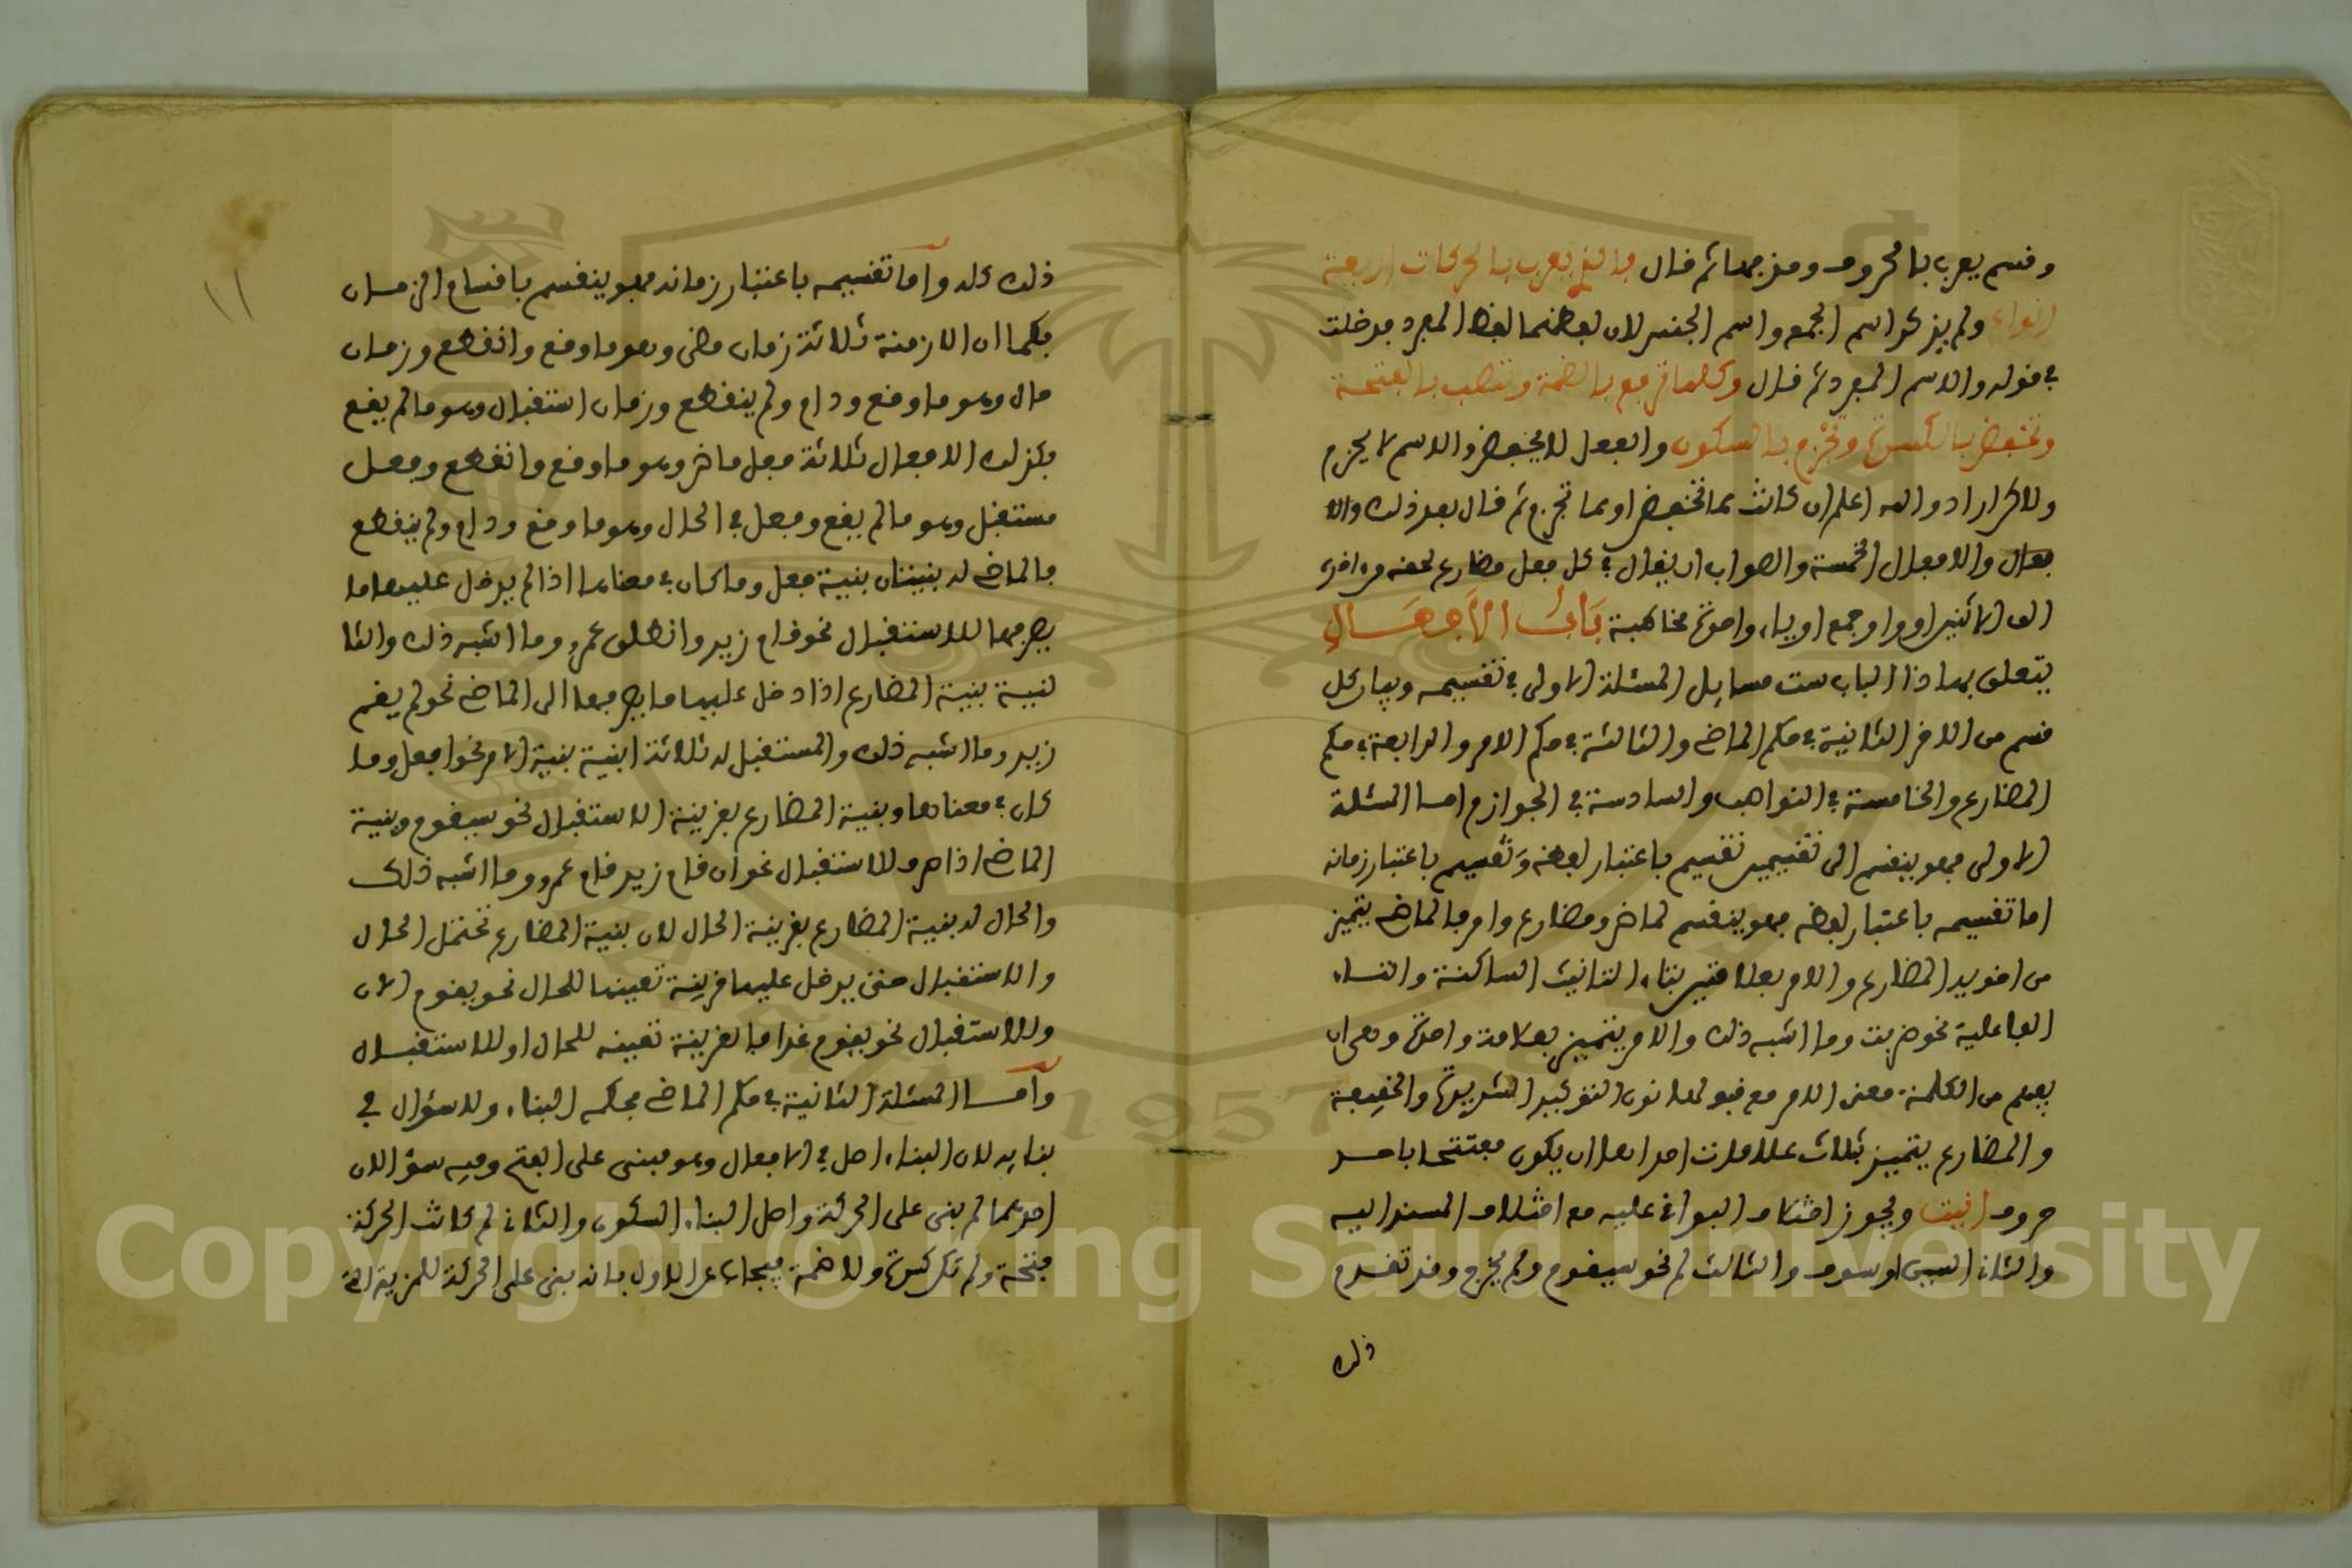 وقسم يعرب بالحروف ومزجهما ثم قال فالذي يعرب بالحركات اربعة
انواع ولم يذكر اسم الجمع واسم الجنس لان لفظهما لفظ المفرد فدخلت
في قوله والاسم المفرد ثم قال وكلها ترفع بالضمة وتنصب بالفتحة
وتخفض بالكسرة وتجزم بالسكون والفعل لا يخفض والاسم لا يجزم
ولاكن اراد والله اعلم ان كانت مما تخفض او مما تجزم ثم قال بعد ذلك والا
فعال والافعال الخمسة والصواب ان يقال في كل فعل مضارع لحقه من اخره
الف الاثنين او واو جمع او ياء واحدة مخاطبة بَابُ الأَفعَالِ
يتعلق بهاذا الباب ست مسايل المسئلة الاولى في تقسيمه وبيان كل
قسم من الاخر الثانية في حكم الماضي والثالثة في حكم الامر والرابعة في حكم
المضارع والخامسة في النواصب والسادسة في الجوازم اما المسئلة
الاولى فهو ينقسم الى تقسيمين تقسيم باعتبار لفظه وتقسيم باعتبار زمانه
اما تقسيمه باعتبار لفظه فهو ينقسم لماض ومضارع وامر فالماضي يتميز
من اخويه المضارع والامر بعلامتين بتاء التانيث الساكنة والتاء
الفاعلية نحو ضربت وما اشبه ذلك والامر يتميز بعلامة واحدة وهي ان
يفهم من الكلمة معنى الامر مع قبولها نون التوكيد الشديدة والخفيفة
والمضارع يتميز بثلاث علامات احداها ان يكون مفتتحا باحد
حروف انيت ويجوز اختلاف البواقي عليه مع اختلاف المسند اليه
والثاني السين او سوف والثالث لم نحو سيقوم ولم يخرج وقد تقدم
ذلك
ذلك كله وأما تقسيمه باعتبار زمانه فهو ينقسم باقسام الزمان
فكما ان الازمنة ثلاثة زمان مضى وهو ما وقع وانقطع وزمان
حال وهو ما وقع ودام ولم ينقطع وزمان استقبال وهو ما لم يقع
فكذلك الافعال ثلاثة فعل ماض وهو ما وقع وانقطع وفعل
مستقبل وهو ما لم يقع وفعل في الحال وهو ما وقع ودام ولم ينقطع
فالماضي له بنيتان بنية فعل وما كان في معناها اذا لم يدخل عليها ما
يصرفها للاستقبال نحو قام زيد وانطلق عمرو وما اشبه ذلك والثا
نية بنية المضارع اذا دخل عليها ما يصرفها الى الماضي نحو لم يقم
زيد وما اشبه ذلك والمستقبل له ثلاثة ابنية بنية الامر نحو افعل وما
كان في معناها وبنية المضارع بقرينة الاستقبال نحو سيقوم وبنية
الماضي اذا صرف للاستقبال نحو ان قام زيد قام عمرو وما اشبه ذلك
والحال له بنية المضارع بقرينة الحال لان بنية المضارع تحتمل الحال
والاستقبال حتى يدخل عليها قرينة تعينها للحال نحو يقوم الان
وللاستقبال نحو يقوم غدا فالقرينة تعينه للحال او للاستقبال
وأما المسئلة الثانية في حكم الماضي فحكمه البناء ولا سؤال في
بنايه لان البناء اصل في الافعال وهو مبنى على الفتح وفيه سؤالان
احدهما لم بنى على الحركة واصل البناء السكون والثاني لم كانت الحركة
فتحة ولم تكن كسرة ولا ضمة فيجاب عن الاول بانه بنى على الحركة للمزية التي
١١